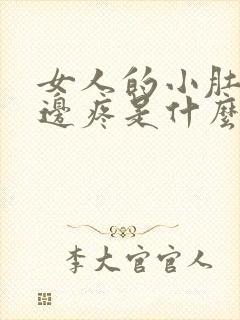 女人的小肚
邊疼是什麼
李大官官人